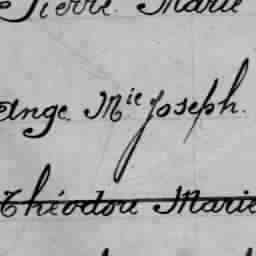 Pierre Marie
Ange Mie Joseph.
Théodore Marie